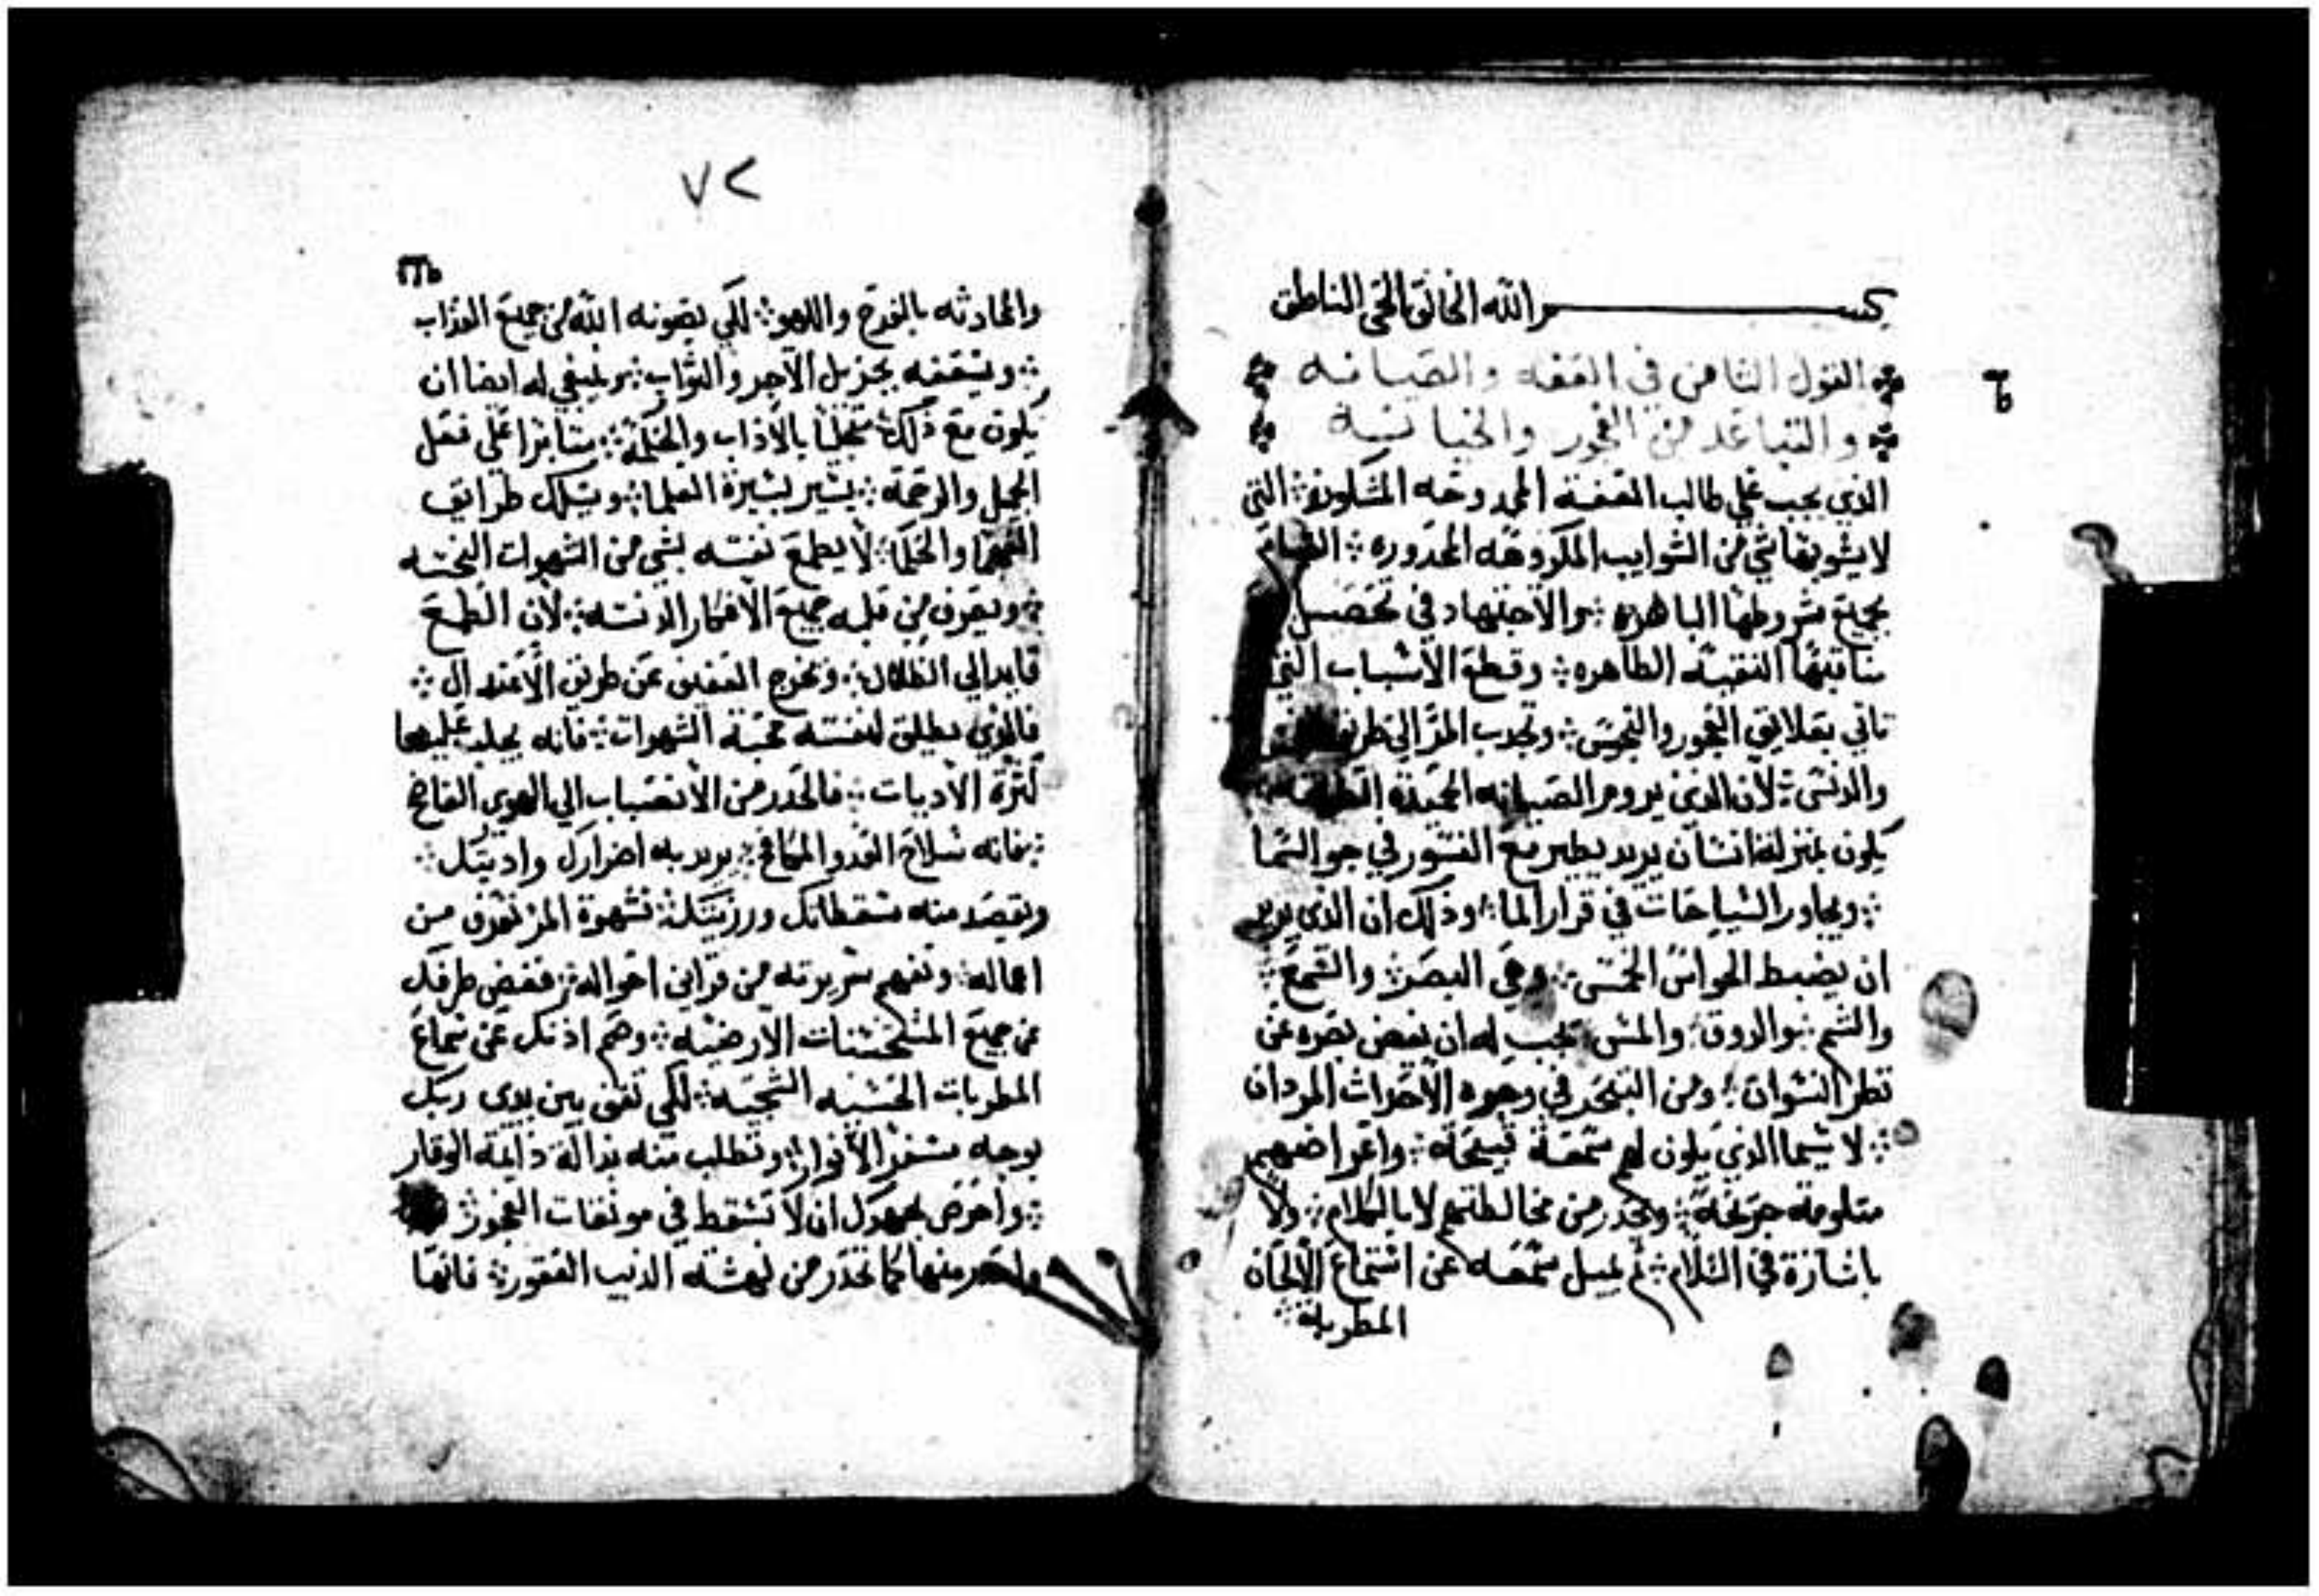 بسم الله الخالق الحي الناطق
القول الثامن في العفه والصيانه
والتباعد من الفجور والخيانه
الذي يجب علي طالب العفة الممدوحه المشكوره ⁘ التي
لا يشوبها شي من الشوايب المكروهه المحدوره ⁘ القيام
بجميع شروطها الباهره ⁘ والاجتهاد في تحصيل
مناقبها النقيه الطاهره ⁘ وقطع الاسباب التي
تاتي بعلايق الفجور والنجس ⁘ وتجدب المرَ الي طريق
والدنس ⁘ لان الذي يروم الصيانه الحميدة
يكون بمنزلة انسان يريد يطير مع النسور في جو السما
⁘ ويجاور السياحات في قرار الما ⁘ وذلك ان الذي يريد
ان يضبط الحواس الخمس ⁘ وهي البصر ⁘ والسمع ⁘
والشم ⁘ والدوق ⁘ والمس ⁘ يجب له ان يغض بصره عن
نظر النسوان ⁘ ومن التبحر في وجوه الاحداث المردان
⁘ لا سيما الذي يكون لهم سمعة قبيحة ⁘ واعراضهم
متلومه جريحة ⁘ ويحدر من مخالطتهم لا بالكلام ⁘ ولا
باشارة في السلام ⁘ ثم يميل سمعه عن استماع الالحان
المطربة ⁘
٧٢
والمحادثه بالفرح واللهو ⁘ لكي يصونه الله من جميع العداب
⁘ ويسعفه بجزيل الاجر والثواب ⁘ وينبغي له ايضا ان
يكون مع ذلك متحليا بالاداب والحكمة ⁘ مثابرا علي فعل
الجميل والرحمة ⁘ يسير بسيرة العلما ⁘ ويسلك طرايق
الفهما والحكما ⁘ لا يطمع نفسه بشي من الشهوات النجسه
⁘ ويصرف من قلبه جميع الافكار الدنسه ⁘ لان الطمع
قايد الي الظلال ⁘ ويخرج العفيف عن طريق الاعتدال ⁘
فالذي يطلق لنفسه محبة الشهوات ⁘ فانه يجلب عليها
كثرة الاديات ⁘ فالحدر من الانصباب الي الهوي الفاضح
⁘ فانه سلاح العدو المكافح ⁘ يريد به اضرارك واديتك ⁘
ويقصد منه سقطاتك ورزيتك ⁘ فشهوة المرَ تعرف من
اعماله ⁘ وتفهم سريرته من قراين احواله ⁘ فغض طرفك
عن جميع المستحسنات الارضيه ⁘ وصم ادنك عن سماع
المطربات الحسيه الشجيه ⁘ لكي تقف بين يدي ربك
بوجه مسفر الانوار ⁘ وتطلب منه بدالة دايمة الوقار
⁘ واحرص بجهدك ان لا تسقط في موبقات الفجور ⁘
واحدر منها كما تحدر من نهشة الديب العقور ⁘ فانها